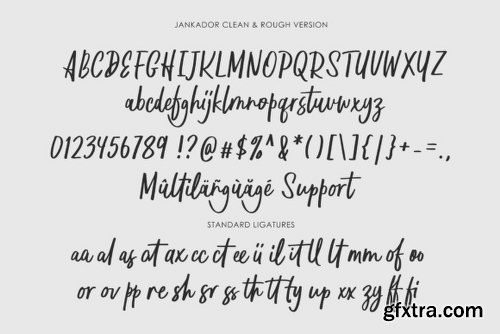 JANKADOR CLEAN & ROUGH VERSION
ABCDEFGHIJKLMNOPQRSTUVWXYZ
abcdefghijklmnopqrstuvwxyz
0123456789 !?@#$%^&*()[\]{|}+-=.,
Mûltiläñgùãgé Support
STANDARD LIGATURES
aa al as at ax cc ct ee ii il it ll lt mm of oo
or ov pp re sh sr ss th tt ty up xx zy ff fi
gfxtra.com